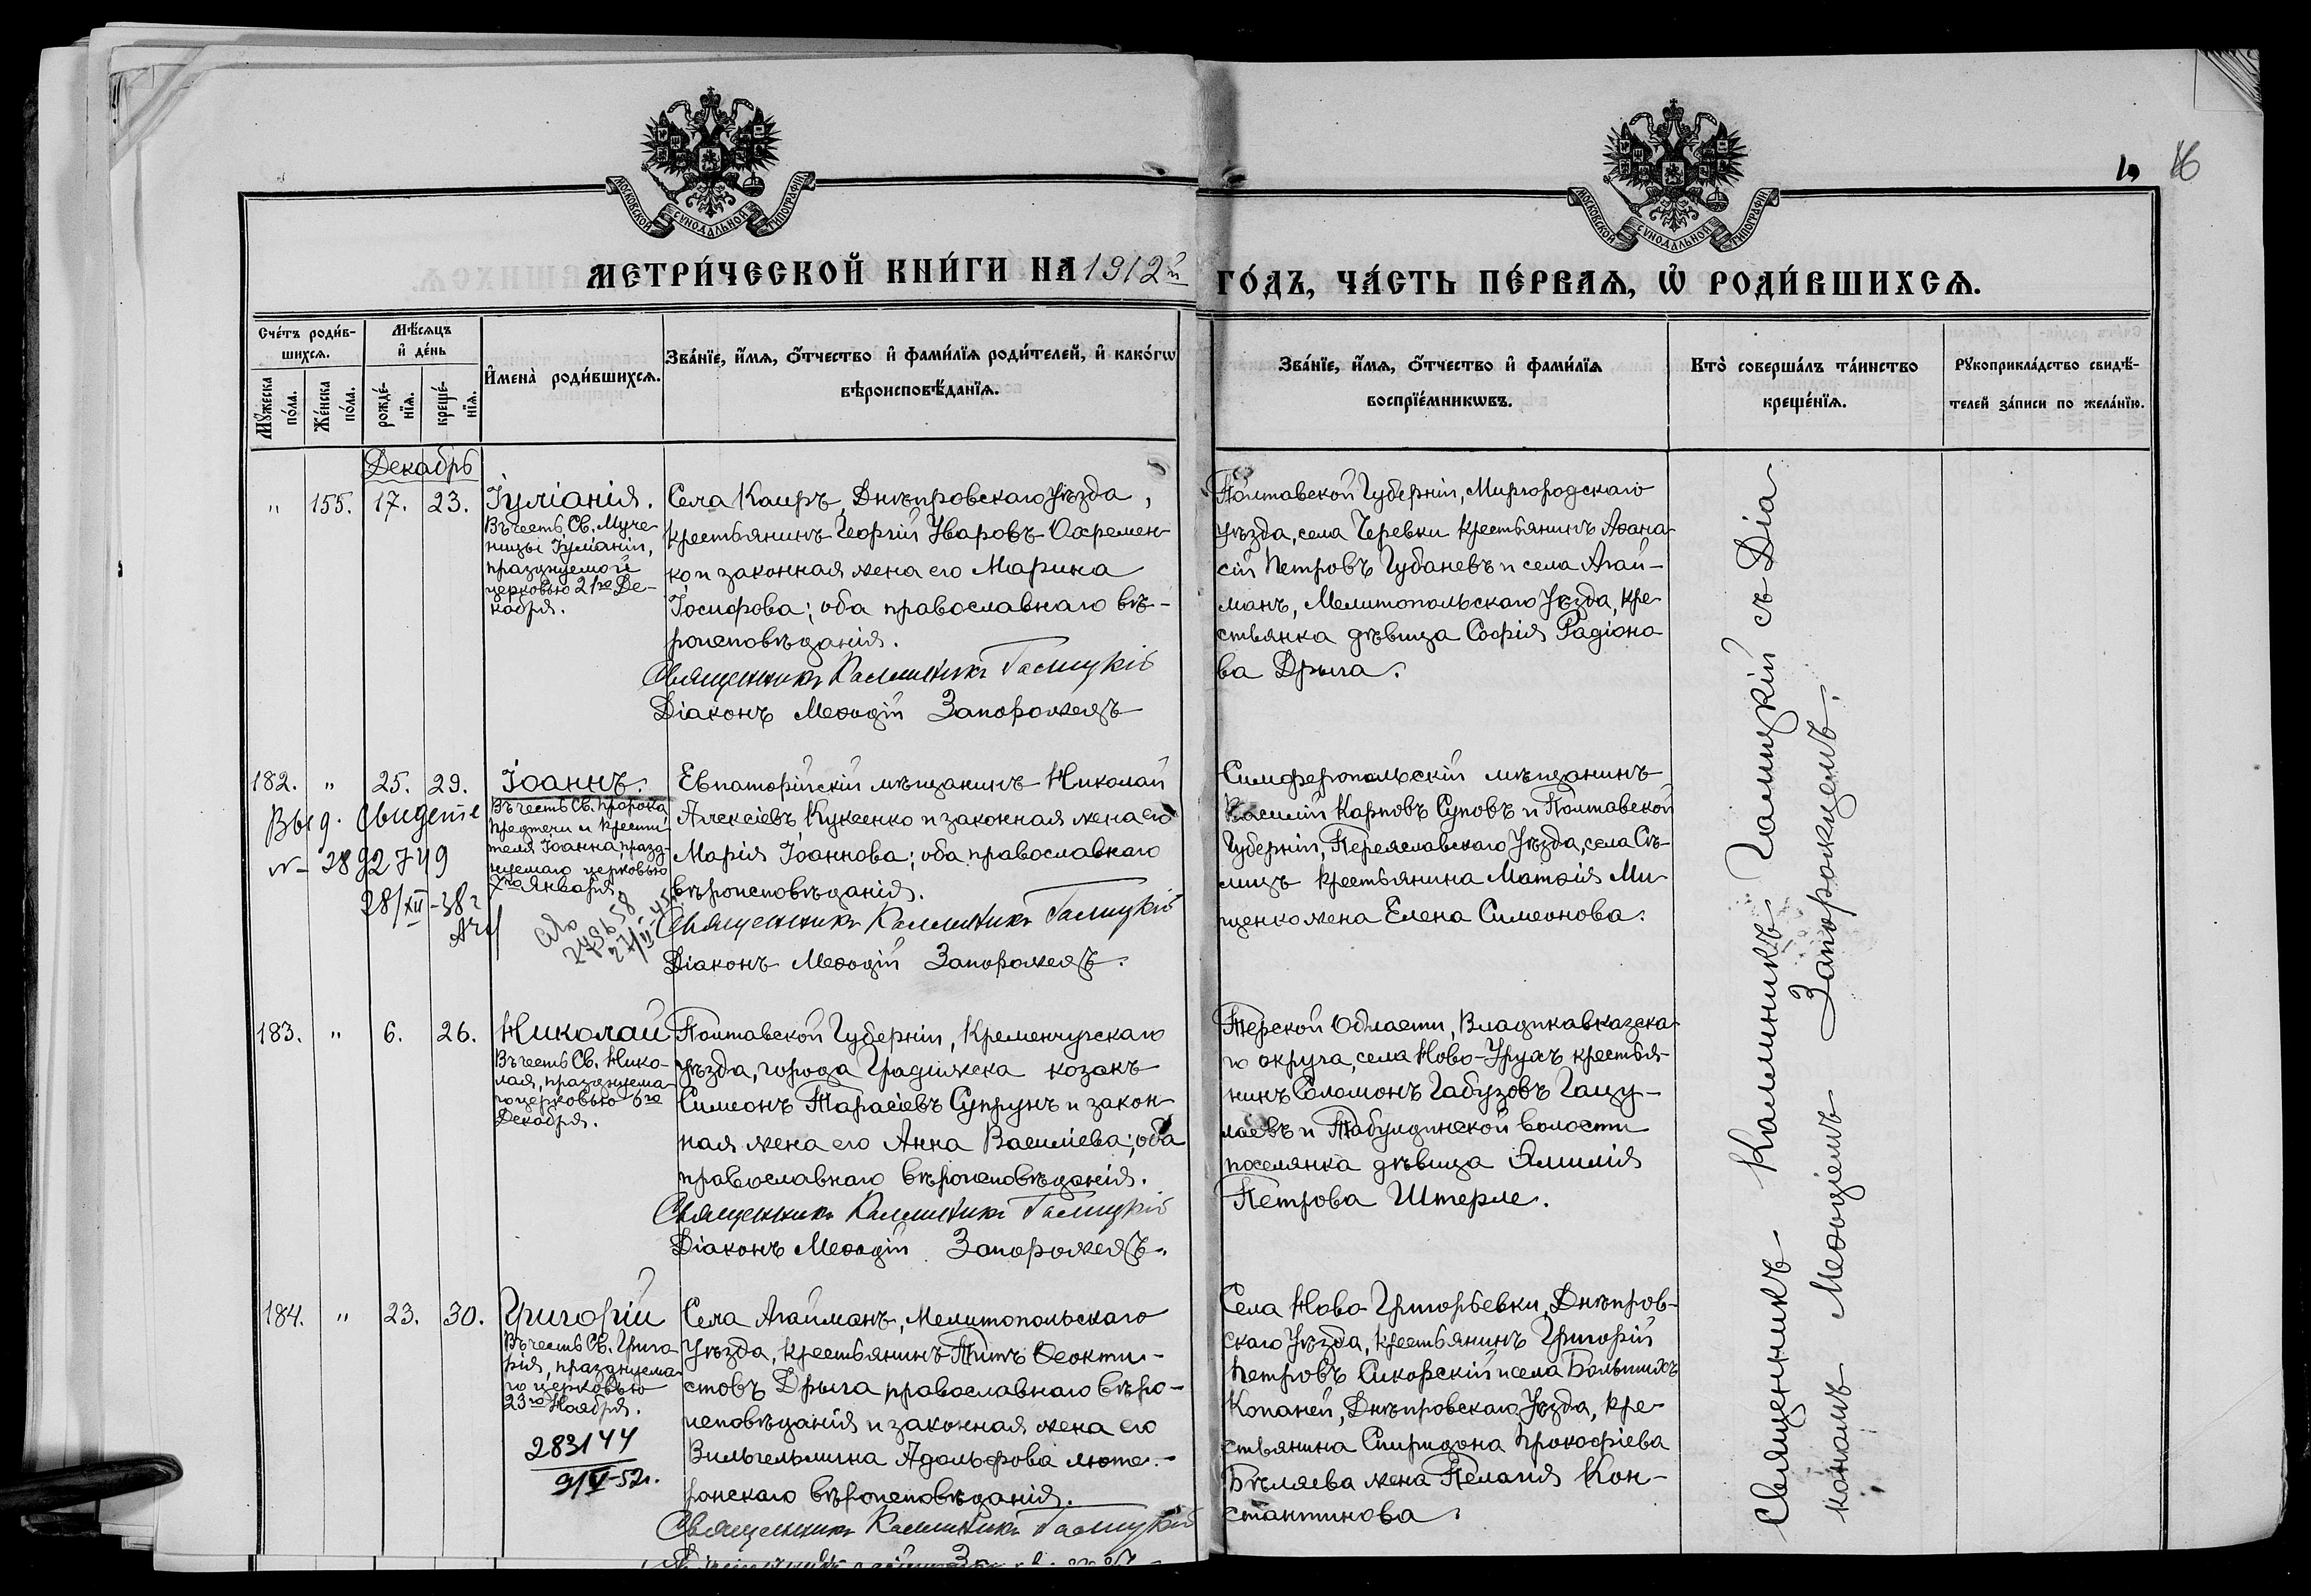 МОСКОВСКОЙ СѴНОДАЛЬНОЙ ТИПОГРАФІИ
МОСКОВСКОЙ СѴНОДАЛЬНОЙ ТИПОГРАФІИ
16
МЕТРИ́ЧЕСКОЙ КНИ́ГИ НА 1912й ГО́ДЪ, ЧА́СТЬ ПЕ́РВАѦ, Ѡ҆ РОДИ́ВШИХСѦ.
Сче́тъ роди́в-
шихсѧ.
Мѣ́сѧцъ
и҆ де́нь
Мꙋ́жеска
по́ла.
Же́нска
по́ла.
рожде́-
нїѧ.
креще́-
нїѧ.
И҆мена̀ роди́вшихсѧ.
Зва́нїе, и҆́мѧ, ѻ҆́тчество и҆ фами́лїѧ роди́телей, и҆ како́гѡ
вѣроисповѣ́данїѧ.
Зва́нїе, и҆́мѧ, ѻ҆́тчество и҆ фами́лїѧ
воспрїе́мникѡвъ.
Кто̀ соверша́лъ та́инство
креще́нїѧ.
Рꙋкоприкла́дство свидѣ́-
телей за́писи по жела́нїю.
Декабрь
" 155. 17. 23.
Іуліанія.
Въ честь Св. Муче-
ницы Іуліаніи,
празднуемой
церковью 21го Де-
кабря.
Села Каиръ, Днѣпровскаго Уѣзда,
крестьянинъ Георгій Уваровъ Охремен-
ко и законная жена его Марина
Іосифова; оба православнаго вѣ-
роисповѣданія.
Священникъ Каллиникъ Галицкій
Діаконъ Меѳодій Запорожецъ
Полтавской Губерніи, Миргородскаго
уѣзда, села Черевки крестьянинъ Аѳана-
сій Петровъ Губаневъ и села Агай-
манъ, Мелитопольскаго Уѣзда, кре-
стьянка дѣвица Софія Радіоно-
ва Дрыга.
182. " 25. 29.
Выд. свидет-е
N- 2892749
28/XII-38г
Іоаннъ.
Въ честь Св. Пророка
Предтечи и Крести-
теля Іоанна, празд-
нуемаго церковью
7го Января.
Евпаторійскій мѣщанинъ Николай
Алексіевъ Куксенко и законная жена его
Марія Іоаннова; оба православнаго
вѣроисповѣданія.
Священникъ Каллиникъ Галицкій
Діаконъ Меѳодій Запорожецъ.
Симферопольскій мѣщанинъ
Василій Карповъ Суповъ и Полтавской
Губерніи, Переяславскаго Уѣзда, села Сѣ-
мицъ крестьянина Матѳія Ми-
щенко жена Елена Симеонова.
183. " 6. 26.
Николай
Въ честь Св. Нико-
лая, празднуема-
го церковью 6го
Декабря.
Полтавской Губерніи, Кременчугскаго
уѣзда, города Градижска козакъ
Симеонъ Тарасіевъ Супрунъ и закон-
ная жена его Анна Василіева; оба
православнаго вѣроисповѣданія.
Священникъ Каллиникъ Галицкій
Діаконъ Меѳодій Запорожецъ.
Терской Области, Владикавказска-
го округа, села Ново-Урухъ крестья-
нинъ Соломонъ Габузовъ Гацу-
лаевъ и Табулдинской волости
поселянка дѣвица Эмилія
Петрова Штерле.
184. " 23. 30.
Григорій
Въ честь Св. Григо-
рія, празднуема-
го церковью
23го Ноября.
283144
9/V-52г.
Села Агайманъ, Мелитопольскаго
Уѣзда, крестьянинъ Титъ Ѳеокти-
стовъ Дрыга православнаго вѣро-
исповѣданія и законная жена его
Вильгельмина Адольфова люте-
ранскаго вѣроисповѣданія.
Священникъ Каллиникъ Галицкій
Села Ново-Григорьевки, Днѣпров-
скаго Уѣзда, крестьянинъ Григорій
Петровъ Сикорскій и села Большихъ
Копаней, Днѣпровскаго Уѣзда, кре-
стьянина Спиридона Прокофіева
Бѣляева жена Пелагія Кон-
стантинова.
Священникъ Каллиникъ Галицкій съ Діа-
кономъ Меѳодіемъ Запорожцемъ.